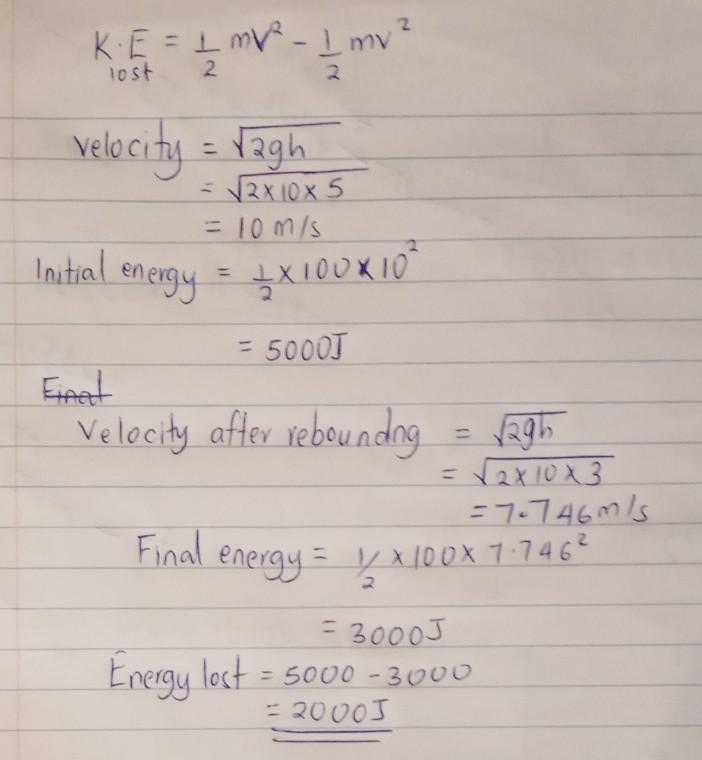 K.E lost = 1/2 mV² - 1/2 mv²
Velocity = √2gh
= √2×10×5
= 10 m/s
Initial energy = 1/2 × 100 × 10²
= 5000J
Final
Velocity after reboundng = √2gh
= √2×10×3
= 7.746m/s
Final energy = 1/2 × 100 × 7.746²
= 3000J
Energy lost = 5000 - 3000
= 2000J